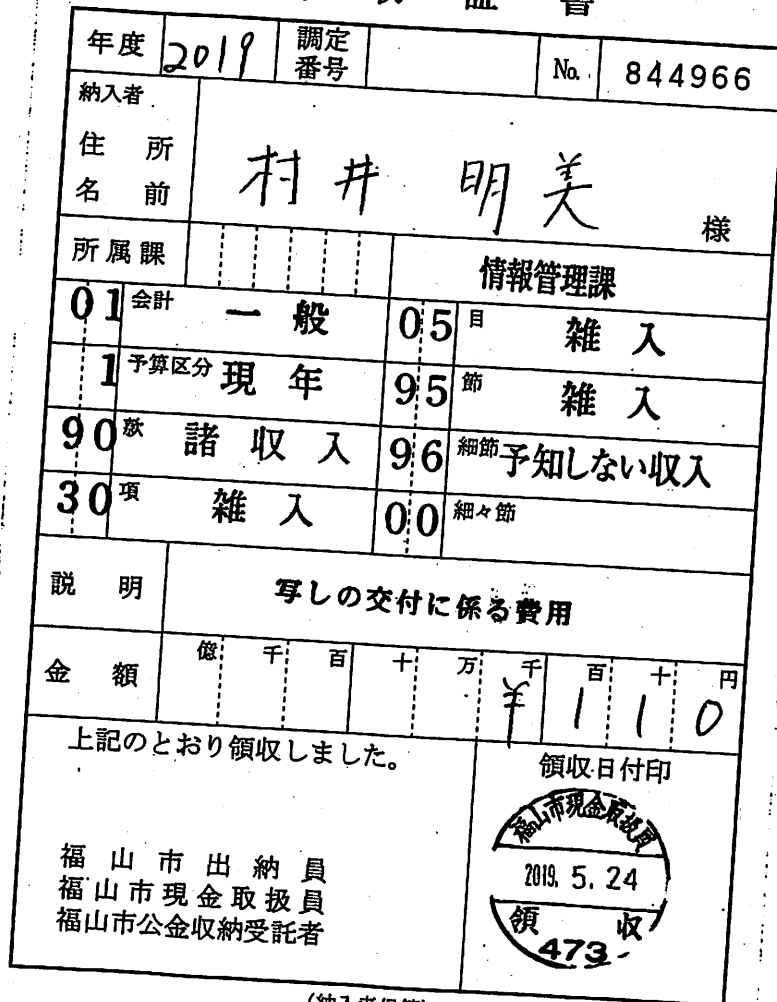 証書
年度 2019 調定番号 No. 844966
納入者
住所
名前 村井 明美 様
所属課 情報管理課
01 会計 一般 05 目 雑入
1 予算区分 現年 95 節 雑入
90 款 諸収入 96 細節 予知しない収入
30 項 雑入 00 細々節
説明 写しの交付に係る費用
金額 億 千 百 十 万 千 百 十 円
¥110
上記のとおり領収しました。
領収日付印
福山市出納員
福山市現金取扱員
福山市公金収納受託者
福山市現金取扱員
2019. 5. 24
領収
473